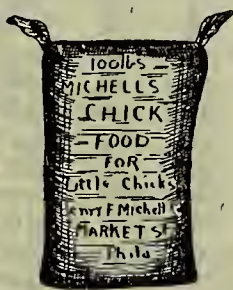 100lbs
MICHELLS
CHICK
FOOD
FOR
Little Chicks
Henry F Michell
MARKET ST
Phila